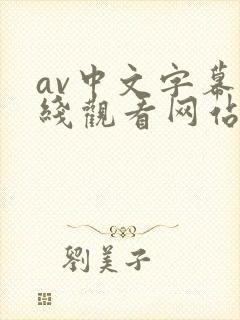 av中文字幕
綫觀看网佔
劉美子